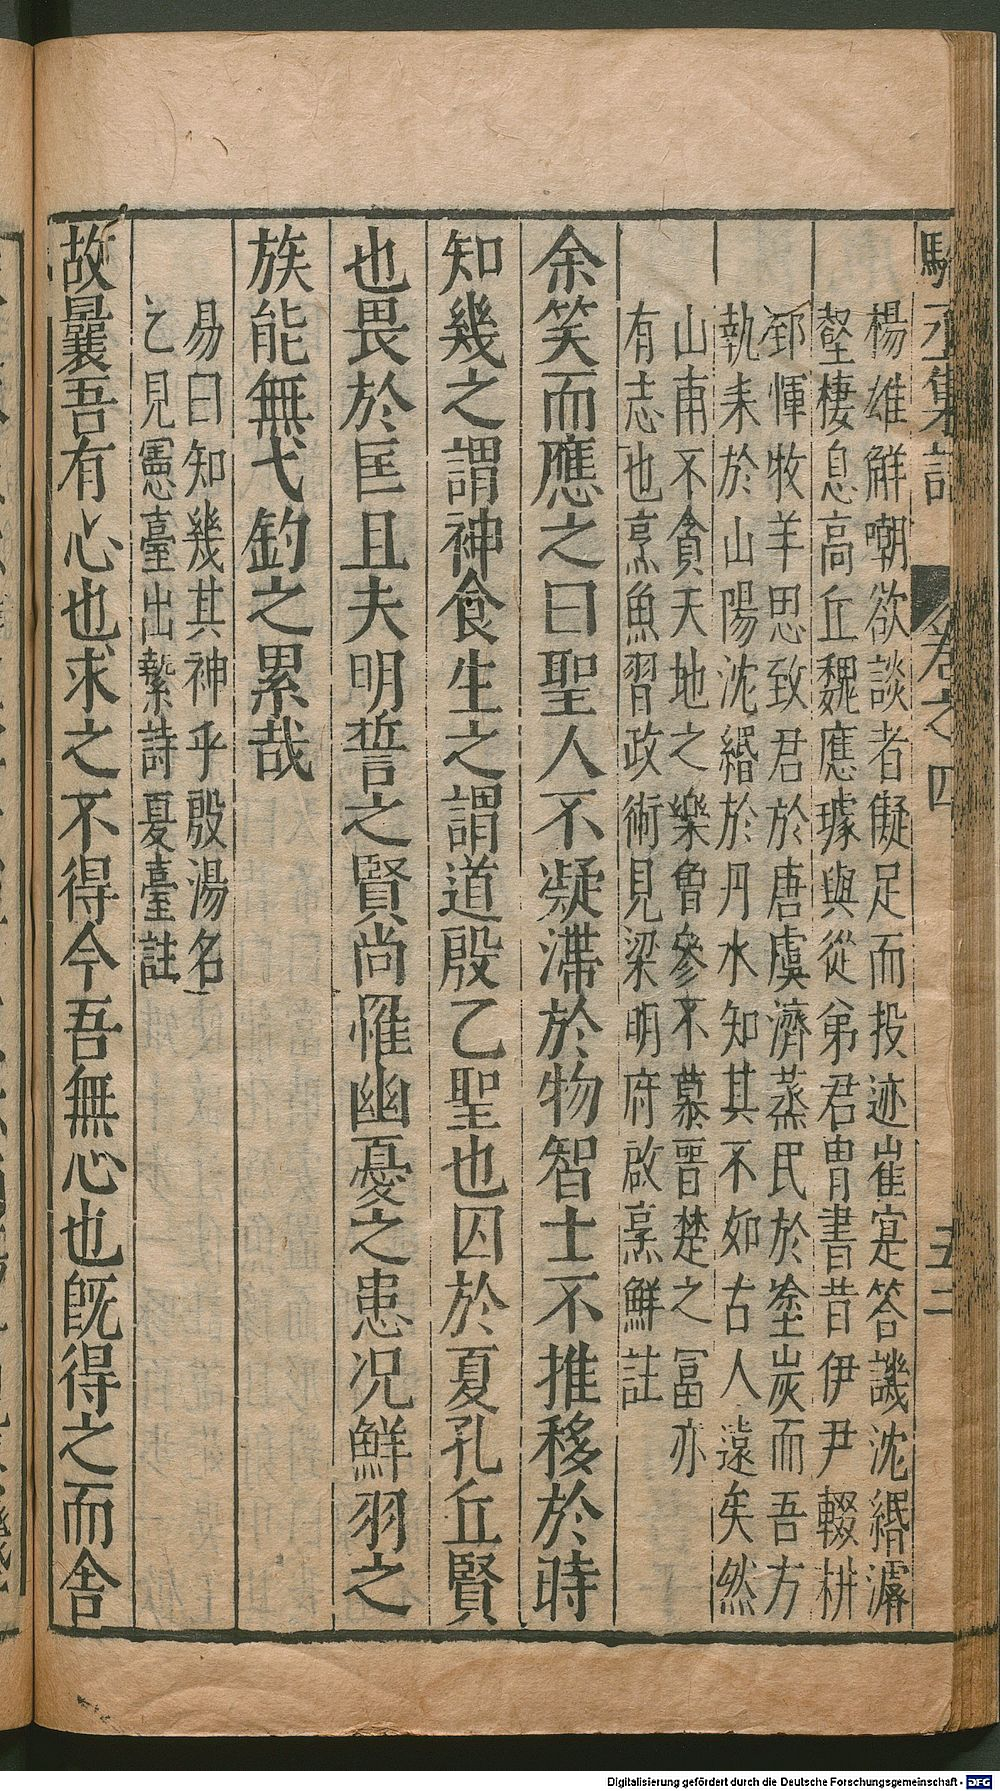 駱丞集註 卷之四 五二
楊雄解嘲欲談者儗足而投迹崔寔答譏沈緡濬
壑棲息高丘魏應璩與從弟君胄書昔伊尹輟耕
郅惲牧羊思致君於唐虞濟蒸民於塗炭而吾方
執耒於山陽沈緡於丹水知其不如古人遠矣然
山甫不貪天地之樂曾參不慕晉楚之富亦
有志也烹魚習政術見梁明府啟烹鮮註
余笑而應之曰聖人不凝滯於物智士不推移於時
知幾之謂神食生之謂道殷乙聖也囚於夏孔丘賢
也畏於匡且夫明誓之賢尚罹幽憂之患况鮮羽之
族能無弋釣之累哉
易曰知幾其神乎殷湯名
乙見憲臺出縶詩夏臺註
故曩吾有心也求之不得今吾無心也旣得之而舍
Digitalisierung gefördert durch die Deutsche Forschungsgemeinschaft - DFG